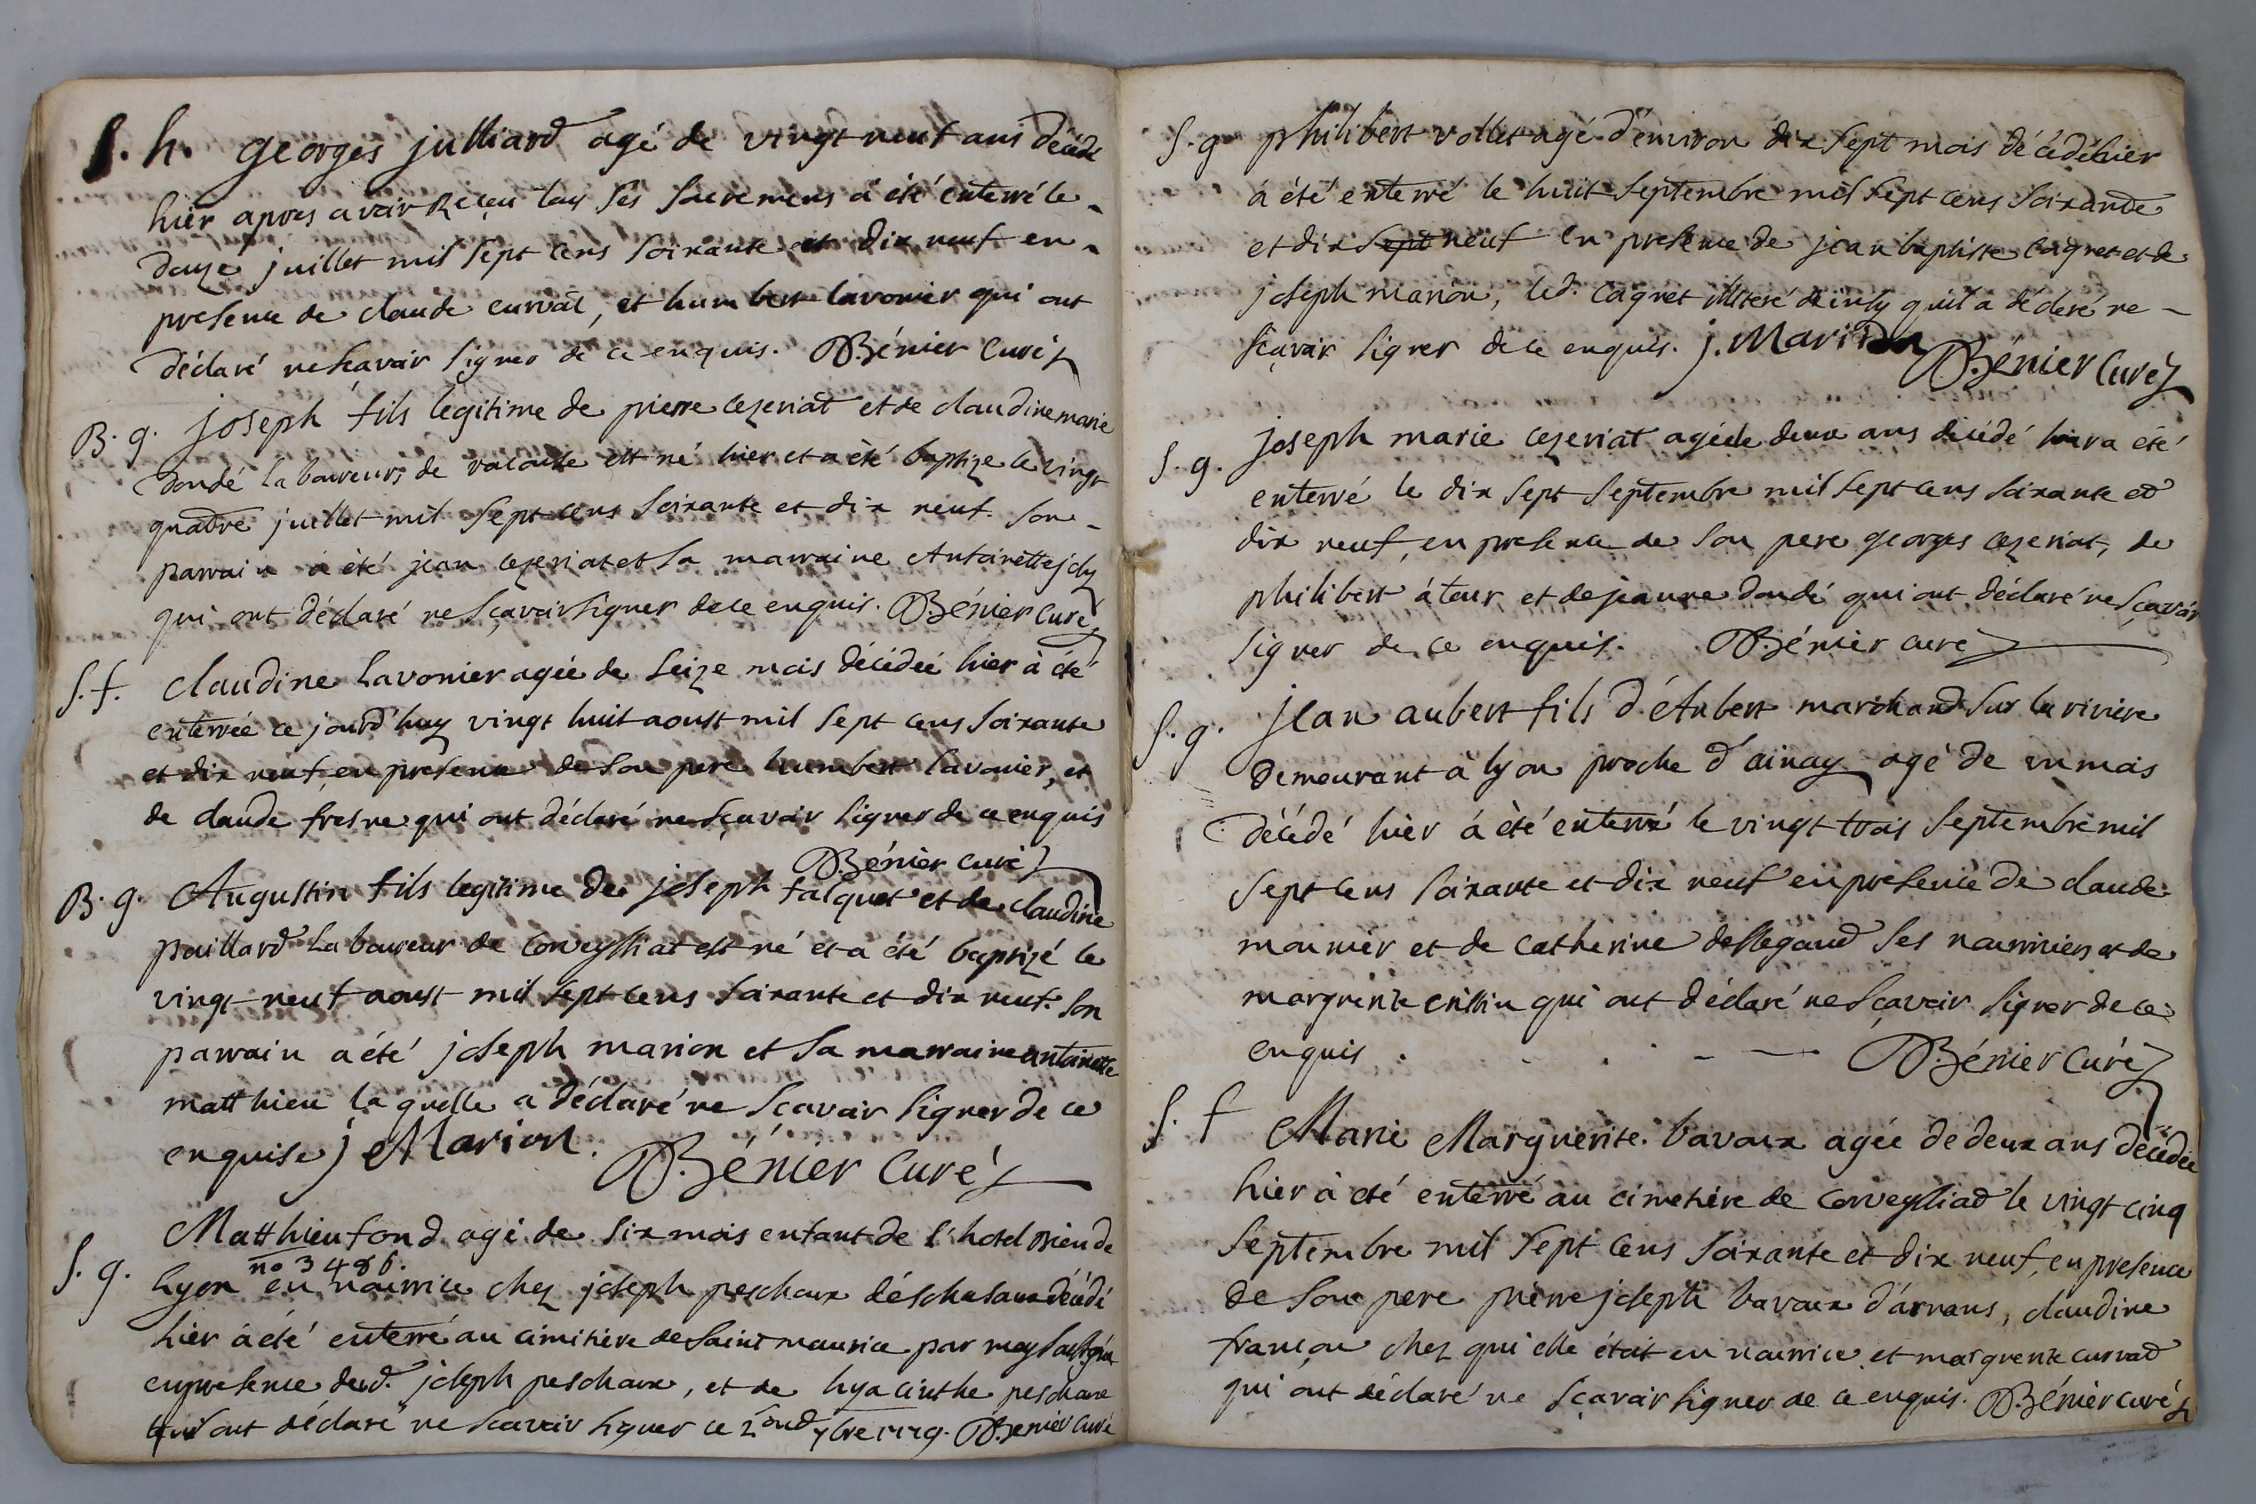 S. h. georges julliard agé de vingt neuf ans décédé
hier apres avoir reçeu tous ses sacremens a été enterré le
douze juillet mil sept cens soixante et dix neuf en
presence de claude curvat, et humbert lavonier qui ont
déclaré ne scavoir signer de ce enquis. B.Bénier curé
B. g. joseph fils legitime de pierre cezeriat et de claudine marie
dondé laboureurs de est né hier et a été baptizé le vingt
quatre juillet mil sept cens soixante et dix neuf. son
parrain a été jean cezeriat et sa marraine Antoinette joly
qui ont déclaré ne sçavoir signer de ce enquis. B.Bénier curé
S. f. claudine lavonier agée de seize mois décédée hier à été
enterrée ce jourd'huy vingt huit aoust mil sept cens soixante
et dix neuf, en presence de son pere humbert lavonier, et
de claude fresne qui ont déclaré ne sçavoir signer de ce enquis
B.Bénier curé
B. g. Augustin fils legitime de joseph falquet et de claudine
paillard laboureur de corveyssiat est né et a été baptizé le
vingt neuf aoust mil sept cens soixante et dix neuf. son
parrain a été joseph marion et sa marraine antoinette
matthieu la quelle a déclaré ne sçavoir signer de ce
enquise j Marion. B.Bénier curé
Matthieu fond agé de six mois enfant de l'hotel Dieu de
no 3486.
S. g. Lyon en nourrice chez joseph peschoux décédé
hier à été enterré au cimitière de saint maurice par moy
en presence dud. joseph peschoux, et de hyacinthe peschoux
qui ont déclaré ne scavoir signer ce 2.ond 7bre 1779. B.Benier curé
S. g philibert vollet agé d'environ dix sept mois décédé hier
à été enterré le huit septembre mil sept cens soixante
et dix sept neuf en presence de jean baptiste cagnet et de
joseph marion, led. cagnet illiteré de insy qu'il a déclaré ne
sçavoir signer de ce enquis. j. Marion
B.Bénier curé
S. g. joseph marie cezeriat agé de deux ans décédé hier a été
enterré le dix sept septembre mil sept cens soixante et
dix neuf, en presence de son pere georges cezeriat, de
philibert àtour et de jeanne dondé qui ont déclaré ne sçavoir
signer de ce enquis. B.Bénier curé
S. g. jean aubert fils d'étubert marchand sur la riviere
demeurant à lyon proche d'ainay agé de un mois
décédé hier à été enterré le vingt trois septembre mil
sept cens soixante et dix neuf en presence de claude
mounier et de catherine dellegaud ses nourriciers et de
marguerite crillin qui ont déclaré ne sçavoir signer de ce
enquis . B.Bénier curé
S. f Marie Marguerite bavoux agée de deux ans décédée
hier à été enterré au cimetière de corveyssiad le vingt cinq
septembre mil sept cens soixante et dix neuf, en presence
de son pere pierre joseph bavoux d'arnans, claudine
françon chez qui elle était en nourrice et marguerite curvad
qui ont déclaré ne sçavoir signer de ce enquis. B.Bénier curé